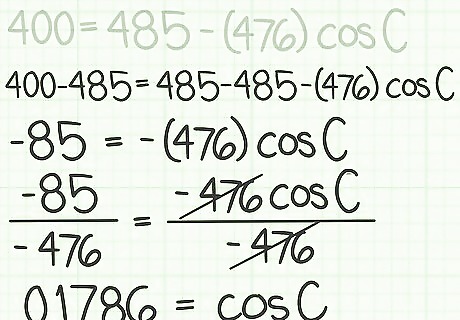 400=485-(476)cosC
400-485=485-485-(476)cosC
-85 = -(476)cosC
-85 = -476cosC
-476 -476
01786 = cosC